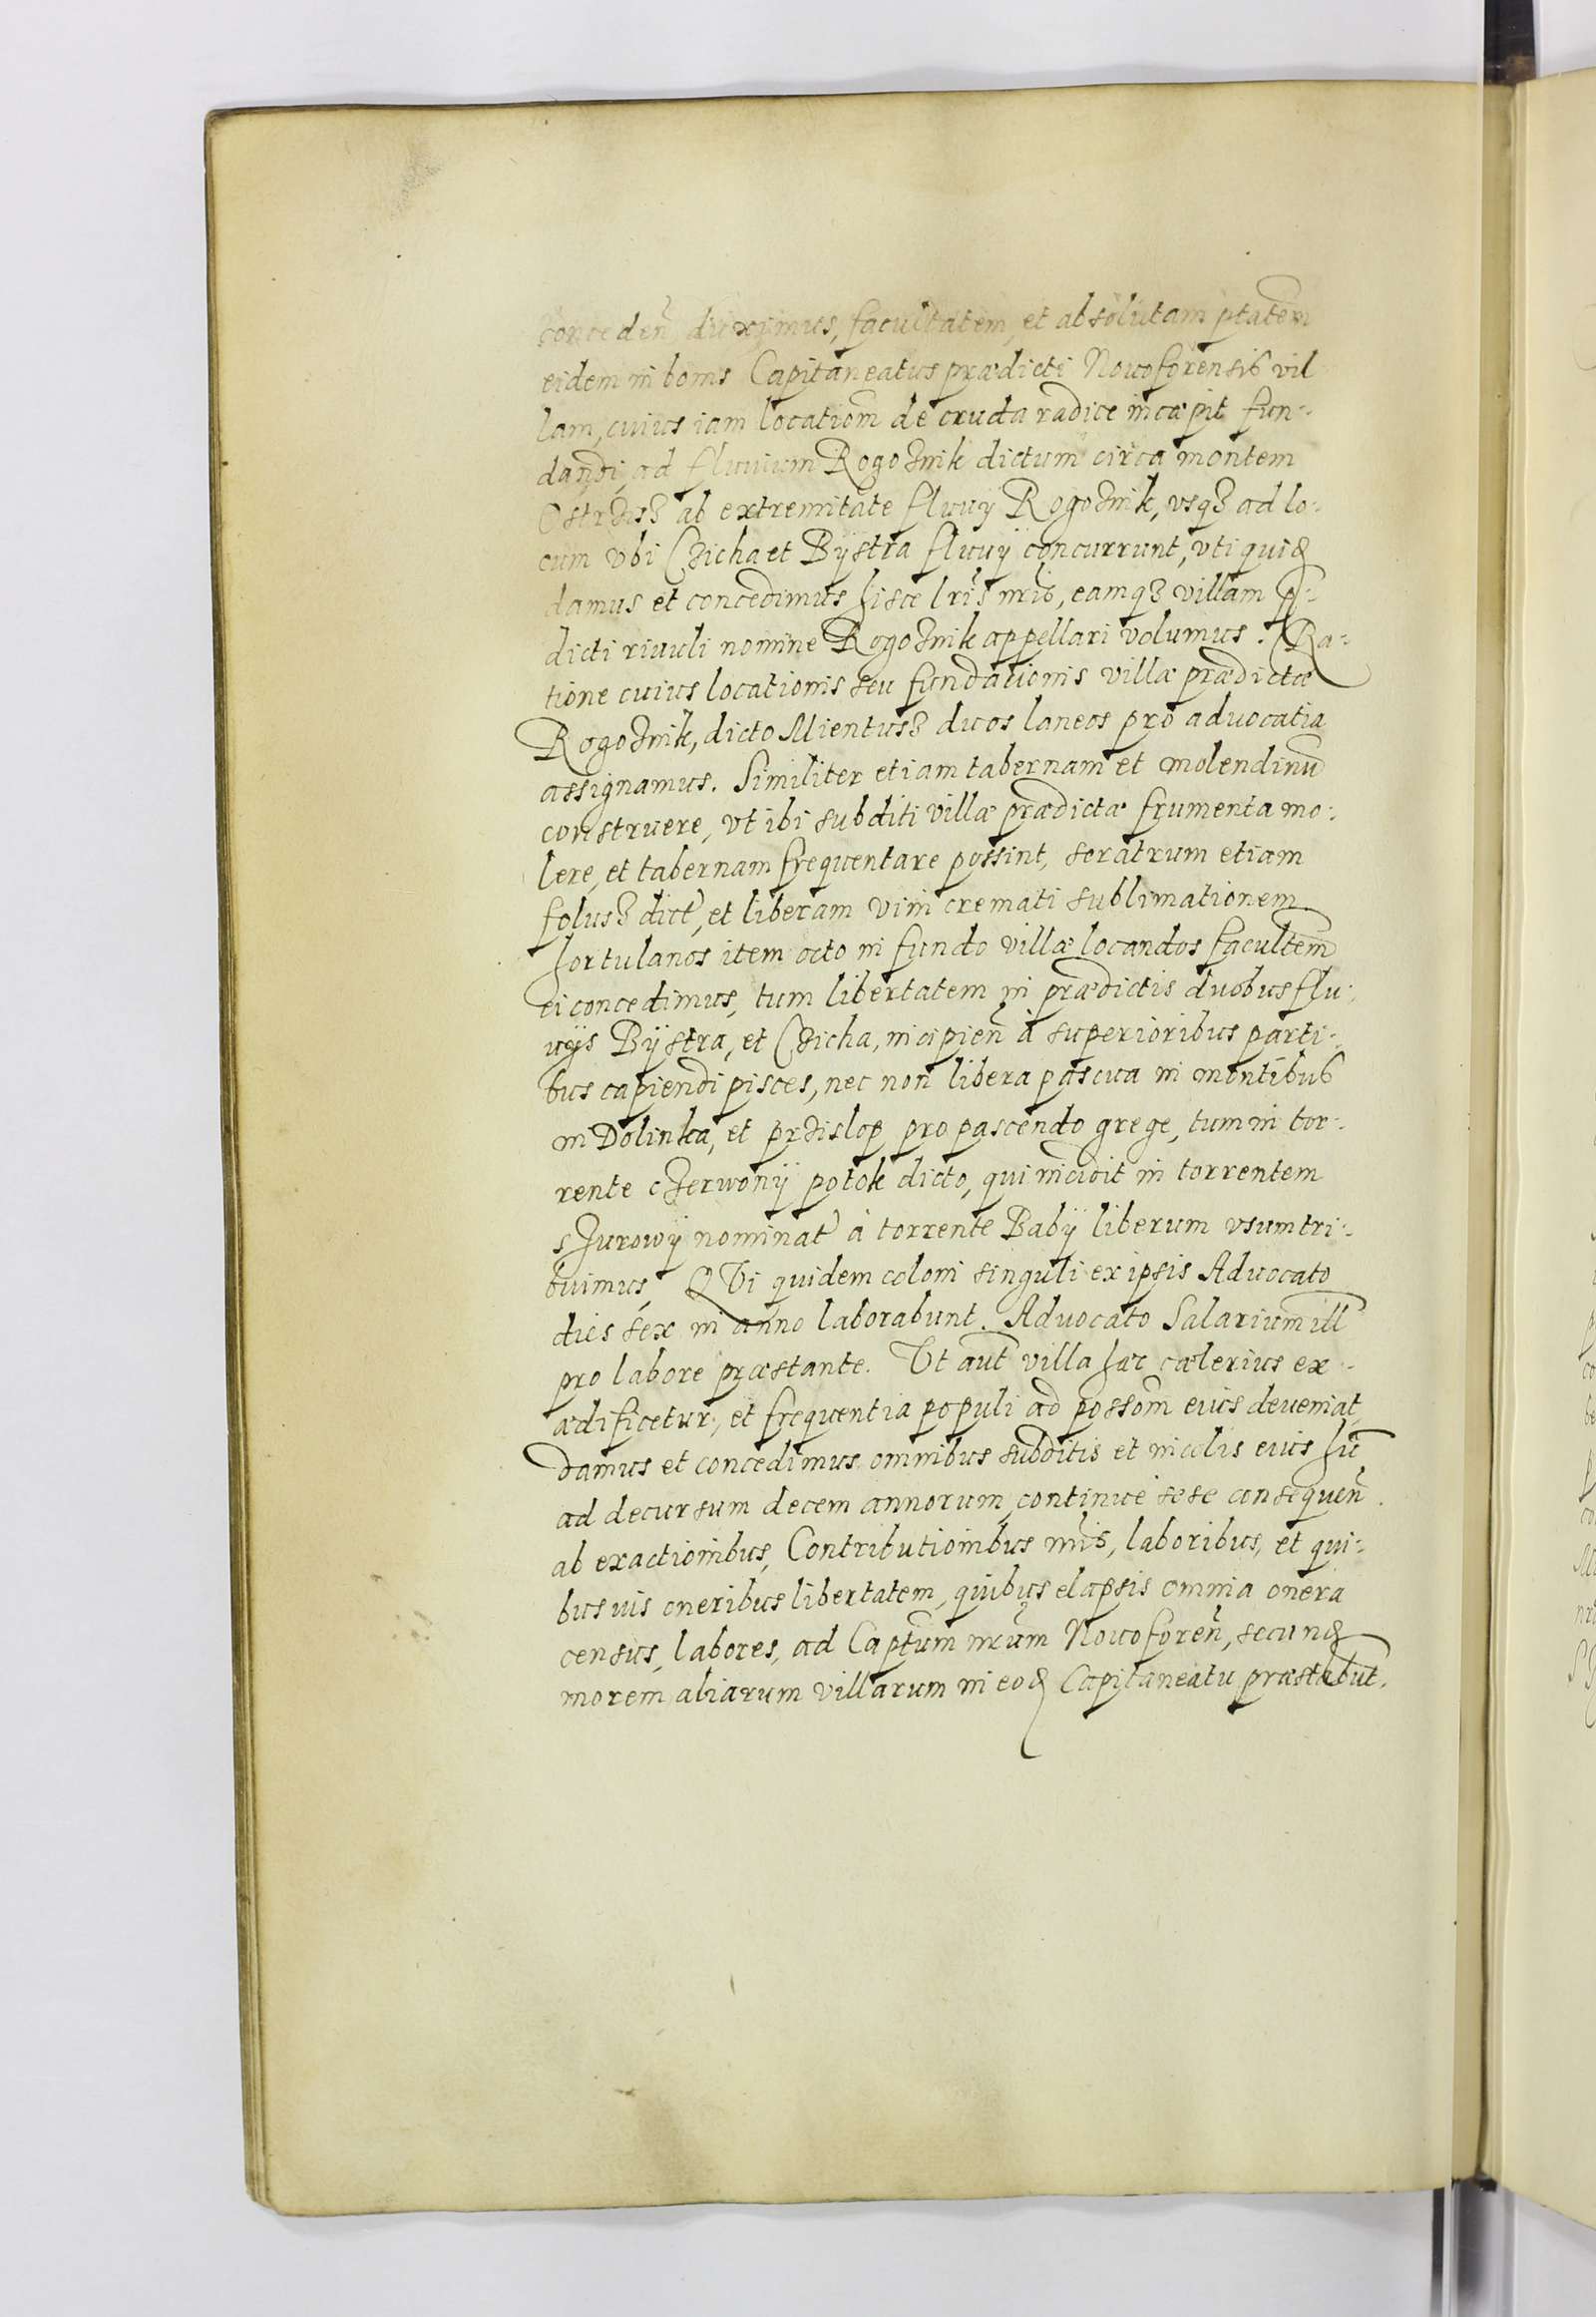 conceden̄ duximus, facultatem, et absolutam ptatem̄
eidem in bonis Capitaneatus prædicti Nouoforensis vil
lam, cuius iam locationē de cruda radice incæpit fun-
dandi, ad fluuium Rogoznik dictum circa montem
Ostrzisz ab extremitate fluuij Rogoznik, vsqꝫ ad lo-
cum vbi Czicha et Bÿstra fluuÿ concurrunt, vti quiđ
damus et concedimus hisce lr̄is nr̄is, eamqꝫ villam p̄-
dicti riuuli nomine Rogoznik appellari volumus. Ra-
tione cuius locationis seu fundationis villæ prædictæ
Rogoznik, dicto Mientusz duos laneos pro aduocatia
assignamus. Similiter etiam tabernam et molendinū
construere, vt ibi subditi villæ prædictæ frumenta mo-
lere, et tabernam frequentare possint, seratrum etiam
folusz dict', et liberam vini cremati sublimationem
hortulanos item octo in fundo villæ locandos facultem̄
ei concedimus, tum libertatem in prædictis duobus flu-
uÿs Bÿstra, et Czicha, incipien̄ à superioribus parti-
bus capiendi pisces, nec non libera pascua in montibus
in Dolinka, et przislop pro pascendo grege, tum in tor-
rente czerwonÿ potok dicto, qui incidit in torrentem
szurowÿ nominat' à torrente Babÿ liberum vsum tri-
buimus, QVi quidem coloni singuli ex ipsis Aduocato
dies sex in anno laborabunt. Aduocato Salarium ill̄
pro labore præstante. Vt aūt villa hæc cælerius ex-
ædificetur, et frequentia populi ad possom̄ eius deueniat,
damus et concedimus omnibus subditis et incolis eius huc̄
ad decursum decem annorum, continue sese consequen̄
ab exactionibus, Contributionibus nr̄is, laboribus, et qui-
busuis oneribus libertatem, quibus elapsis omnia onera
census, labores, ad Captūm nr̄um Nouoforen̄, secunđ
morem aliarum villarum in eođ Capitaneatu præstabūt.